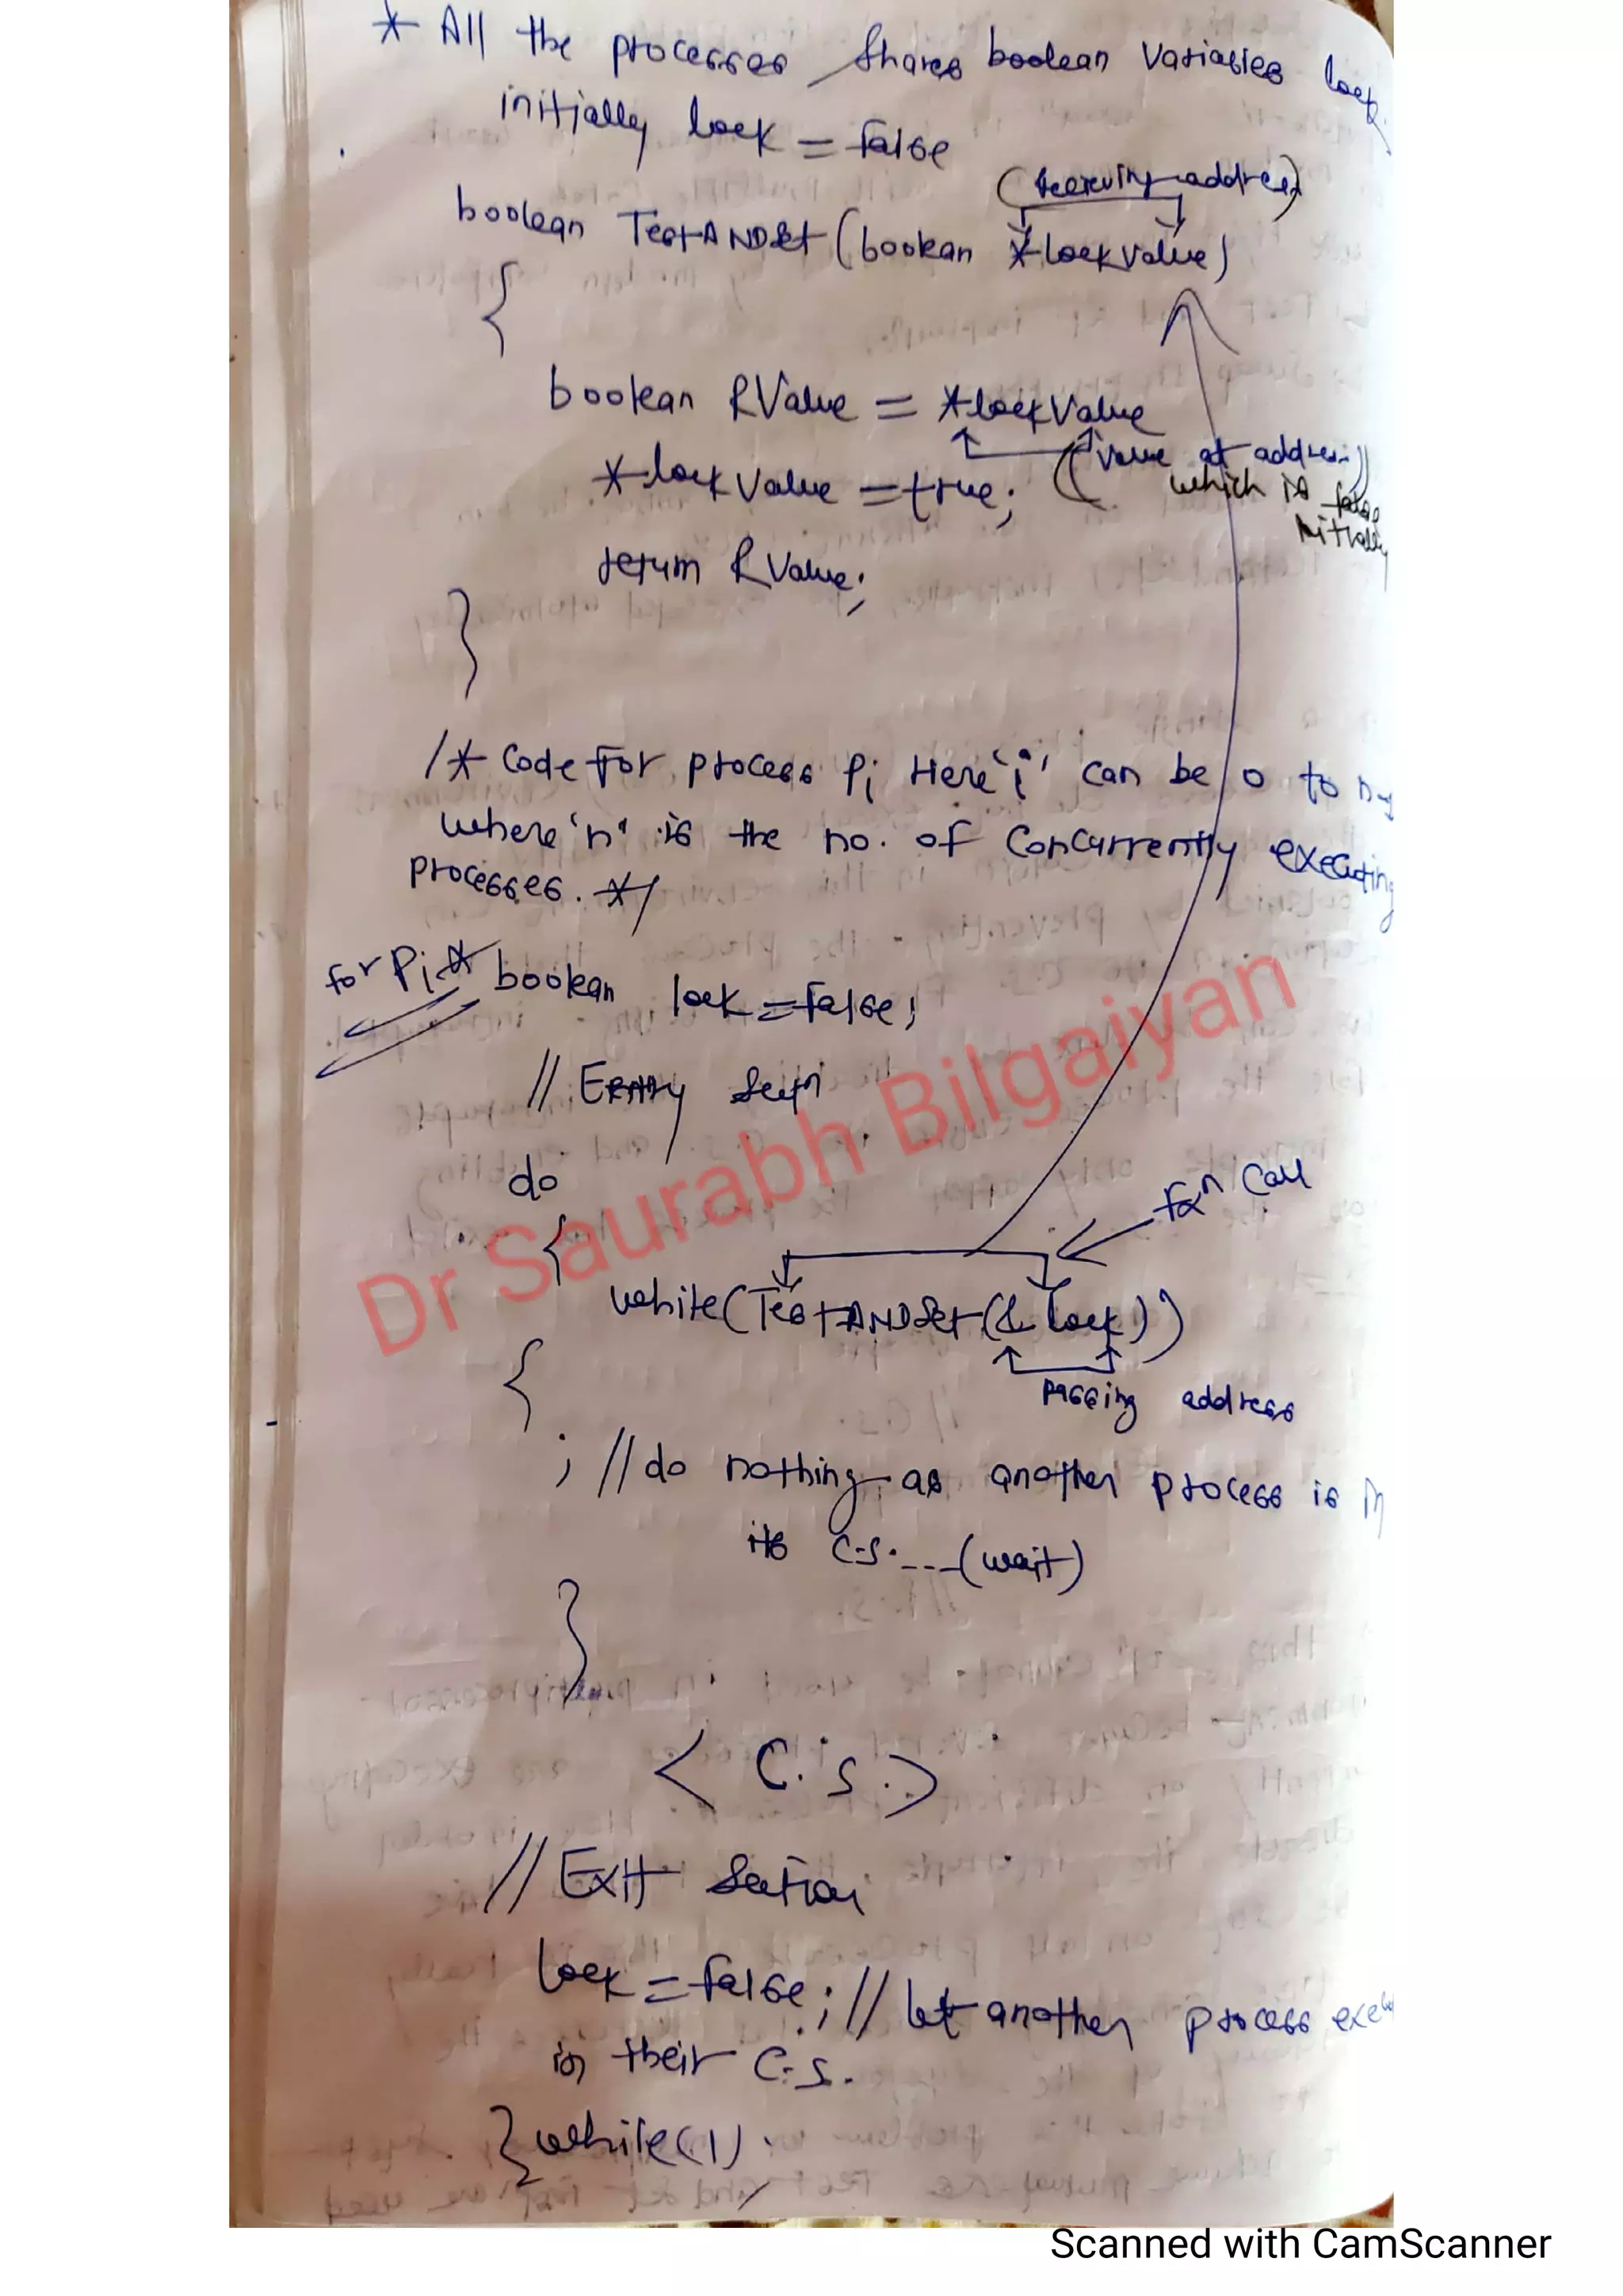 * All the processes shares boolean variables lock.
initially lock = false
(receiving address)
boolean TestANDSet (boolean *lockvalue)
{
boolean RValue = *lockValue
(value at address
which is false
initially
*lockValue = true;
return RValue;
}
/* Code for process Pi Here 'i' can be 0 to n-1
where 'n' is the no. of concurrently executing
processes. */
for Pi
boolean lock = false;
// Entry Sectn
do
{
fxn Call
while(TestANDSet(& lock))
passing address
{
; // do nothing as another process is in
its C.S. ... (wait)
}
< C.S. >
// Exit Section
lock = false; // let another process
in their C.S.
} while(1).
Dr Saurabh Bilgaiyan
Scanned with CamScanner